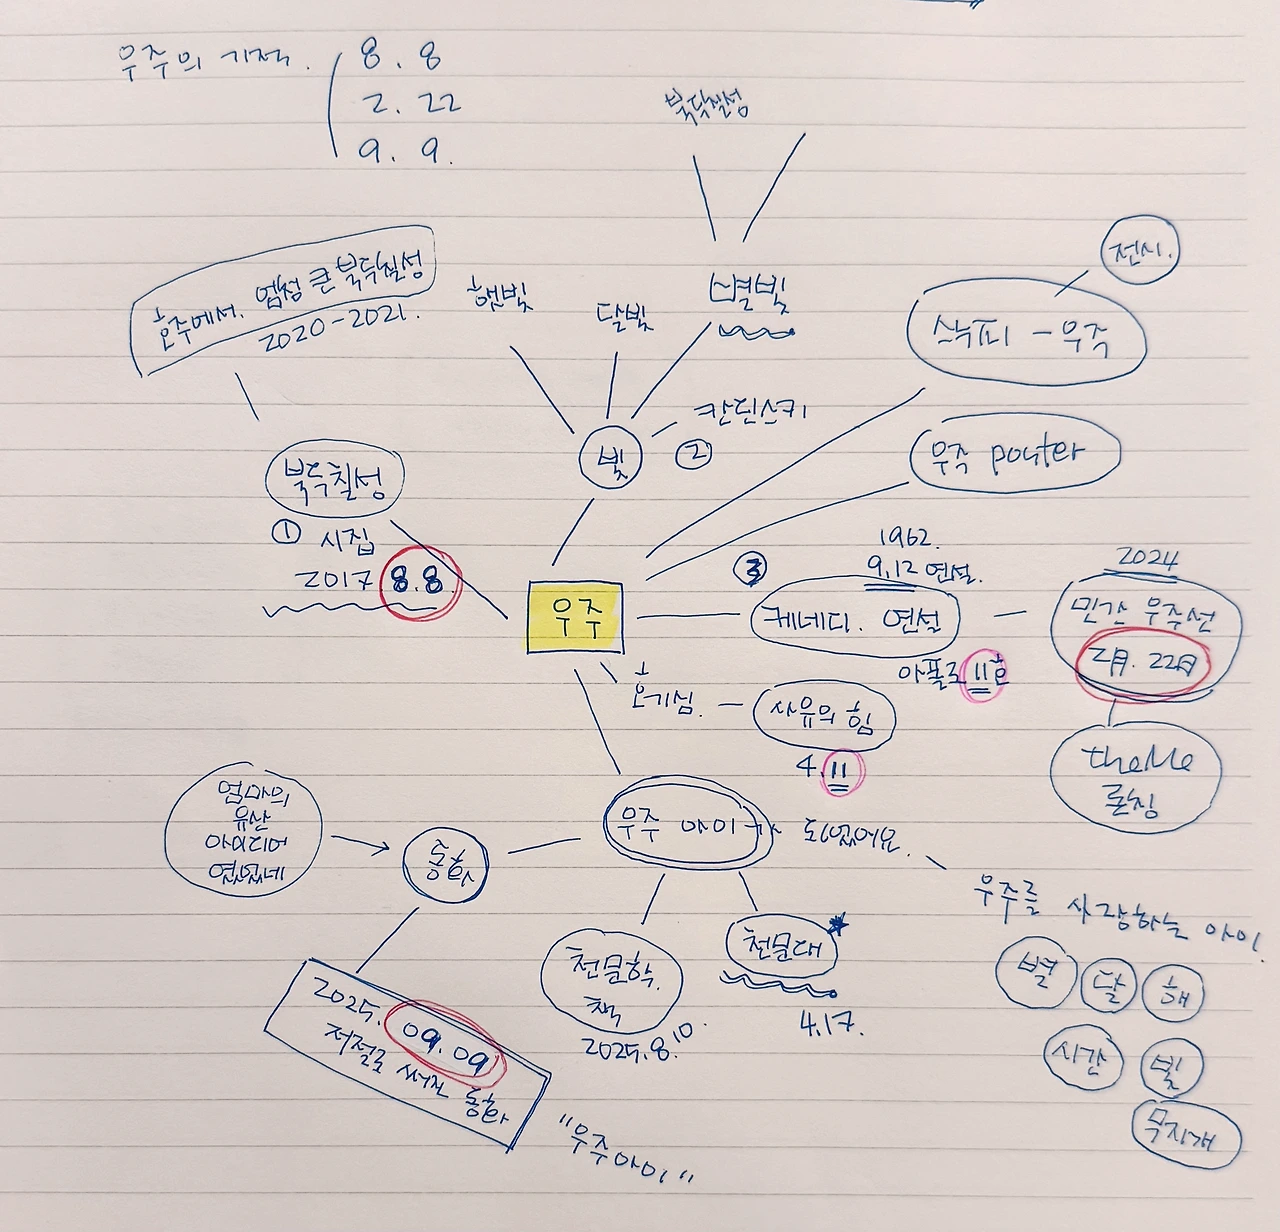 우주의 기적.
8. 8
2. 22
9. 9.
북두칠성
전시.
호주에서. 엄청 큰 북두칠성
2020-2021.
햇빛
달빛
별빛
스누피 - 우주
빛
칸딘스키
②
우주 poster
북두칠성
① 시집
2017 8.8.
우주
③
1962.
9.12 연설.
케네디. 연설
아폴로 11호
2024
민간 우주선
2月. 22日
theMe
론칭
호기심.
사유의 힘
4.11
엄마의
유산
아이디어
얻었네
동화
우주 아이가 되었어요.
우주를 사랑하는 아이.
별 달 해
시간 빛
무지개
천문학.
책
2025.8.10.
천문대
4.17.
2025. 09.09
저절로 써진 동화
"우주아이"